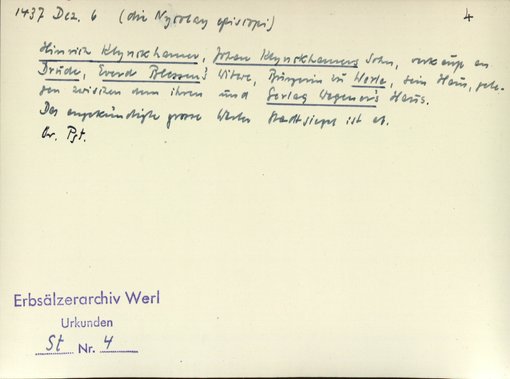 1437 Dez. 6 (die Nycolay episcopi) 4
Hinrich Klynckhamer, Johan Klynckhamers Sohn, verkauft an
Drude, Everd Blessen's Witwe, Bürgerin zu Werle, sein Haus, gele-
gen zwischen dem ihren und Gerlag Wegener's Haus.
Das angekündigte grosse Werler Stadtsiegel ist ab.
Or. Pgt.
Erbsälzerarchiv Werl
Urkunden
St Nr. 4